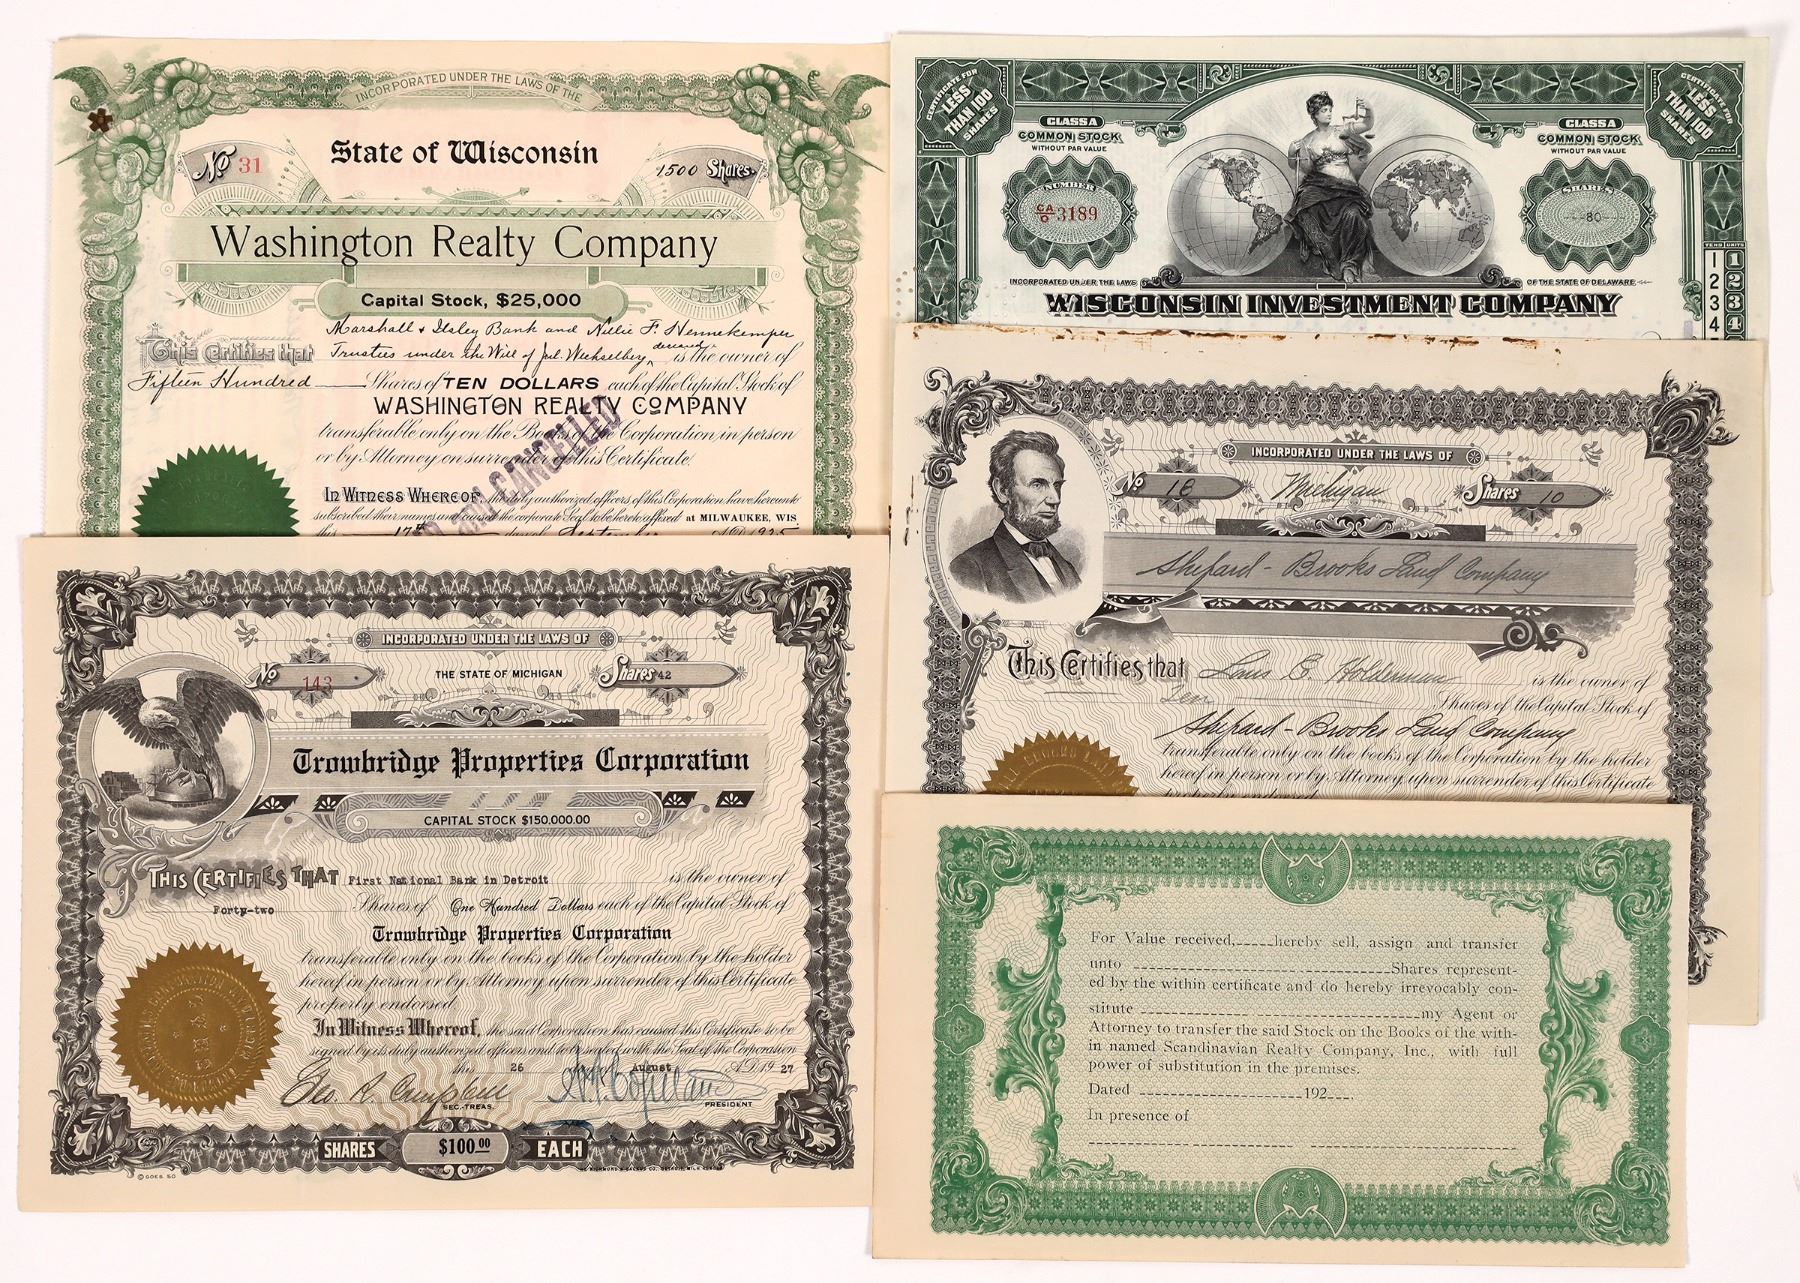 INCORPORATED UNDER THE LAWS OF THE
State of Wisconsin
No 31
1500 Shares
Washington Realty Company
Capital Stock, $25,000
Marshall & Ilsley Bank and Nellie F. Hennekemper
This Certifies that Trustees under the Will of Jul. Wechselberg, deceased is the owner of
Fifteen Hundred Shares of TEN DOLLARS each of the Capital Stock of
WASHINGTON REALTY COMPANY
transferable only on the Books of the Corporation, in person
or by Attorney, on surrender of this Certificate.
CANCELLED
IN WITNESS WHEREOF, the duly authorized officers of this Corporation have hereunto
subscribed their names and caused the corporate Seal to be hereto affixed at MILWAUKEE, WIS.
this 17th day of September A.D. 1925
CERTIFICATE FOR
LESS
THAN 100
SHARES
CLASS A
COMMON STOCK
WITHOUT PAR VALUE
NUMBER
CA/O 3189
CERTIFICATE FOR
LESS
THAN 100
SHARES
CLASS A
COMMON STOCK
WITHOUT PAR VALUE
SHARES
80
TENS UNITS
1 1
2 2
3 3
4 4
INCORPORATED UNDER THE LAWS
OF THE STATE OF DELAWARE
WISCONSIN INVESTMENT COMPANY
INCORPORATED UNDER THE LAWS OF
No 18
Michigan
Shares 10
Shepard-Brooks Land Company
This Certifies that Louis E. Holderman is the owner of
Ten Shares of the Capital Stock of
Shepard-Brooks Land Company
transferable only on the books of the Corporation by the holder
hereof in person or by Attorney upon surrender of this Certificate
INCORPORATED UNDER THE LAWS OF
No 143
THE STATE OF MICHIGAN
Shares 42
Trowbridge Properties Corporation
CAPITAL STOCK $150,000.00
THIS CERTIFIES THAT First National Bank in Detroit is the owner of
Forty-two Shares of One Hundred Dollars each of the Capital Stock of
Trowbridge Properties Corporation
transferable only on the books of the Corporation by the holder
hereof in person or by Attorney upon surrender of this Certificate
properly endorsed.
In Witness Whereof, the said Corporation has caused this Certificate to be
signed by its duly authorized officers and to be sealed with the Seal of the Corporation
this 26 day of August A.D. 1927
Geo. R. Campbell
SEC.-TREAS.
PRESIDENT
SHARES $100.00 EACH
© GOES 50
For Value received, hereby sell, assign and transfer
unto Shares represent-
ed by the within certificate and do hereby irrevocably con-
stitute my Agent or
Attorney to transfer the said Stock on the Books of the with-
in named Scandinavian Realty Company, Inc., with full
power of substitution in the premises.
Dated 192
In presence of